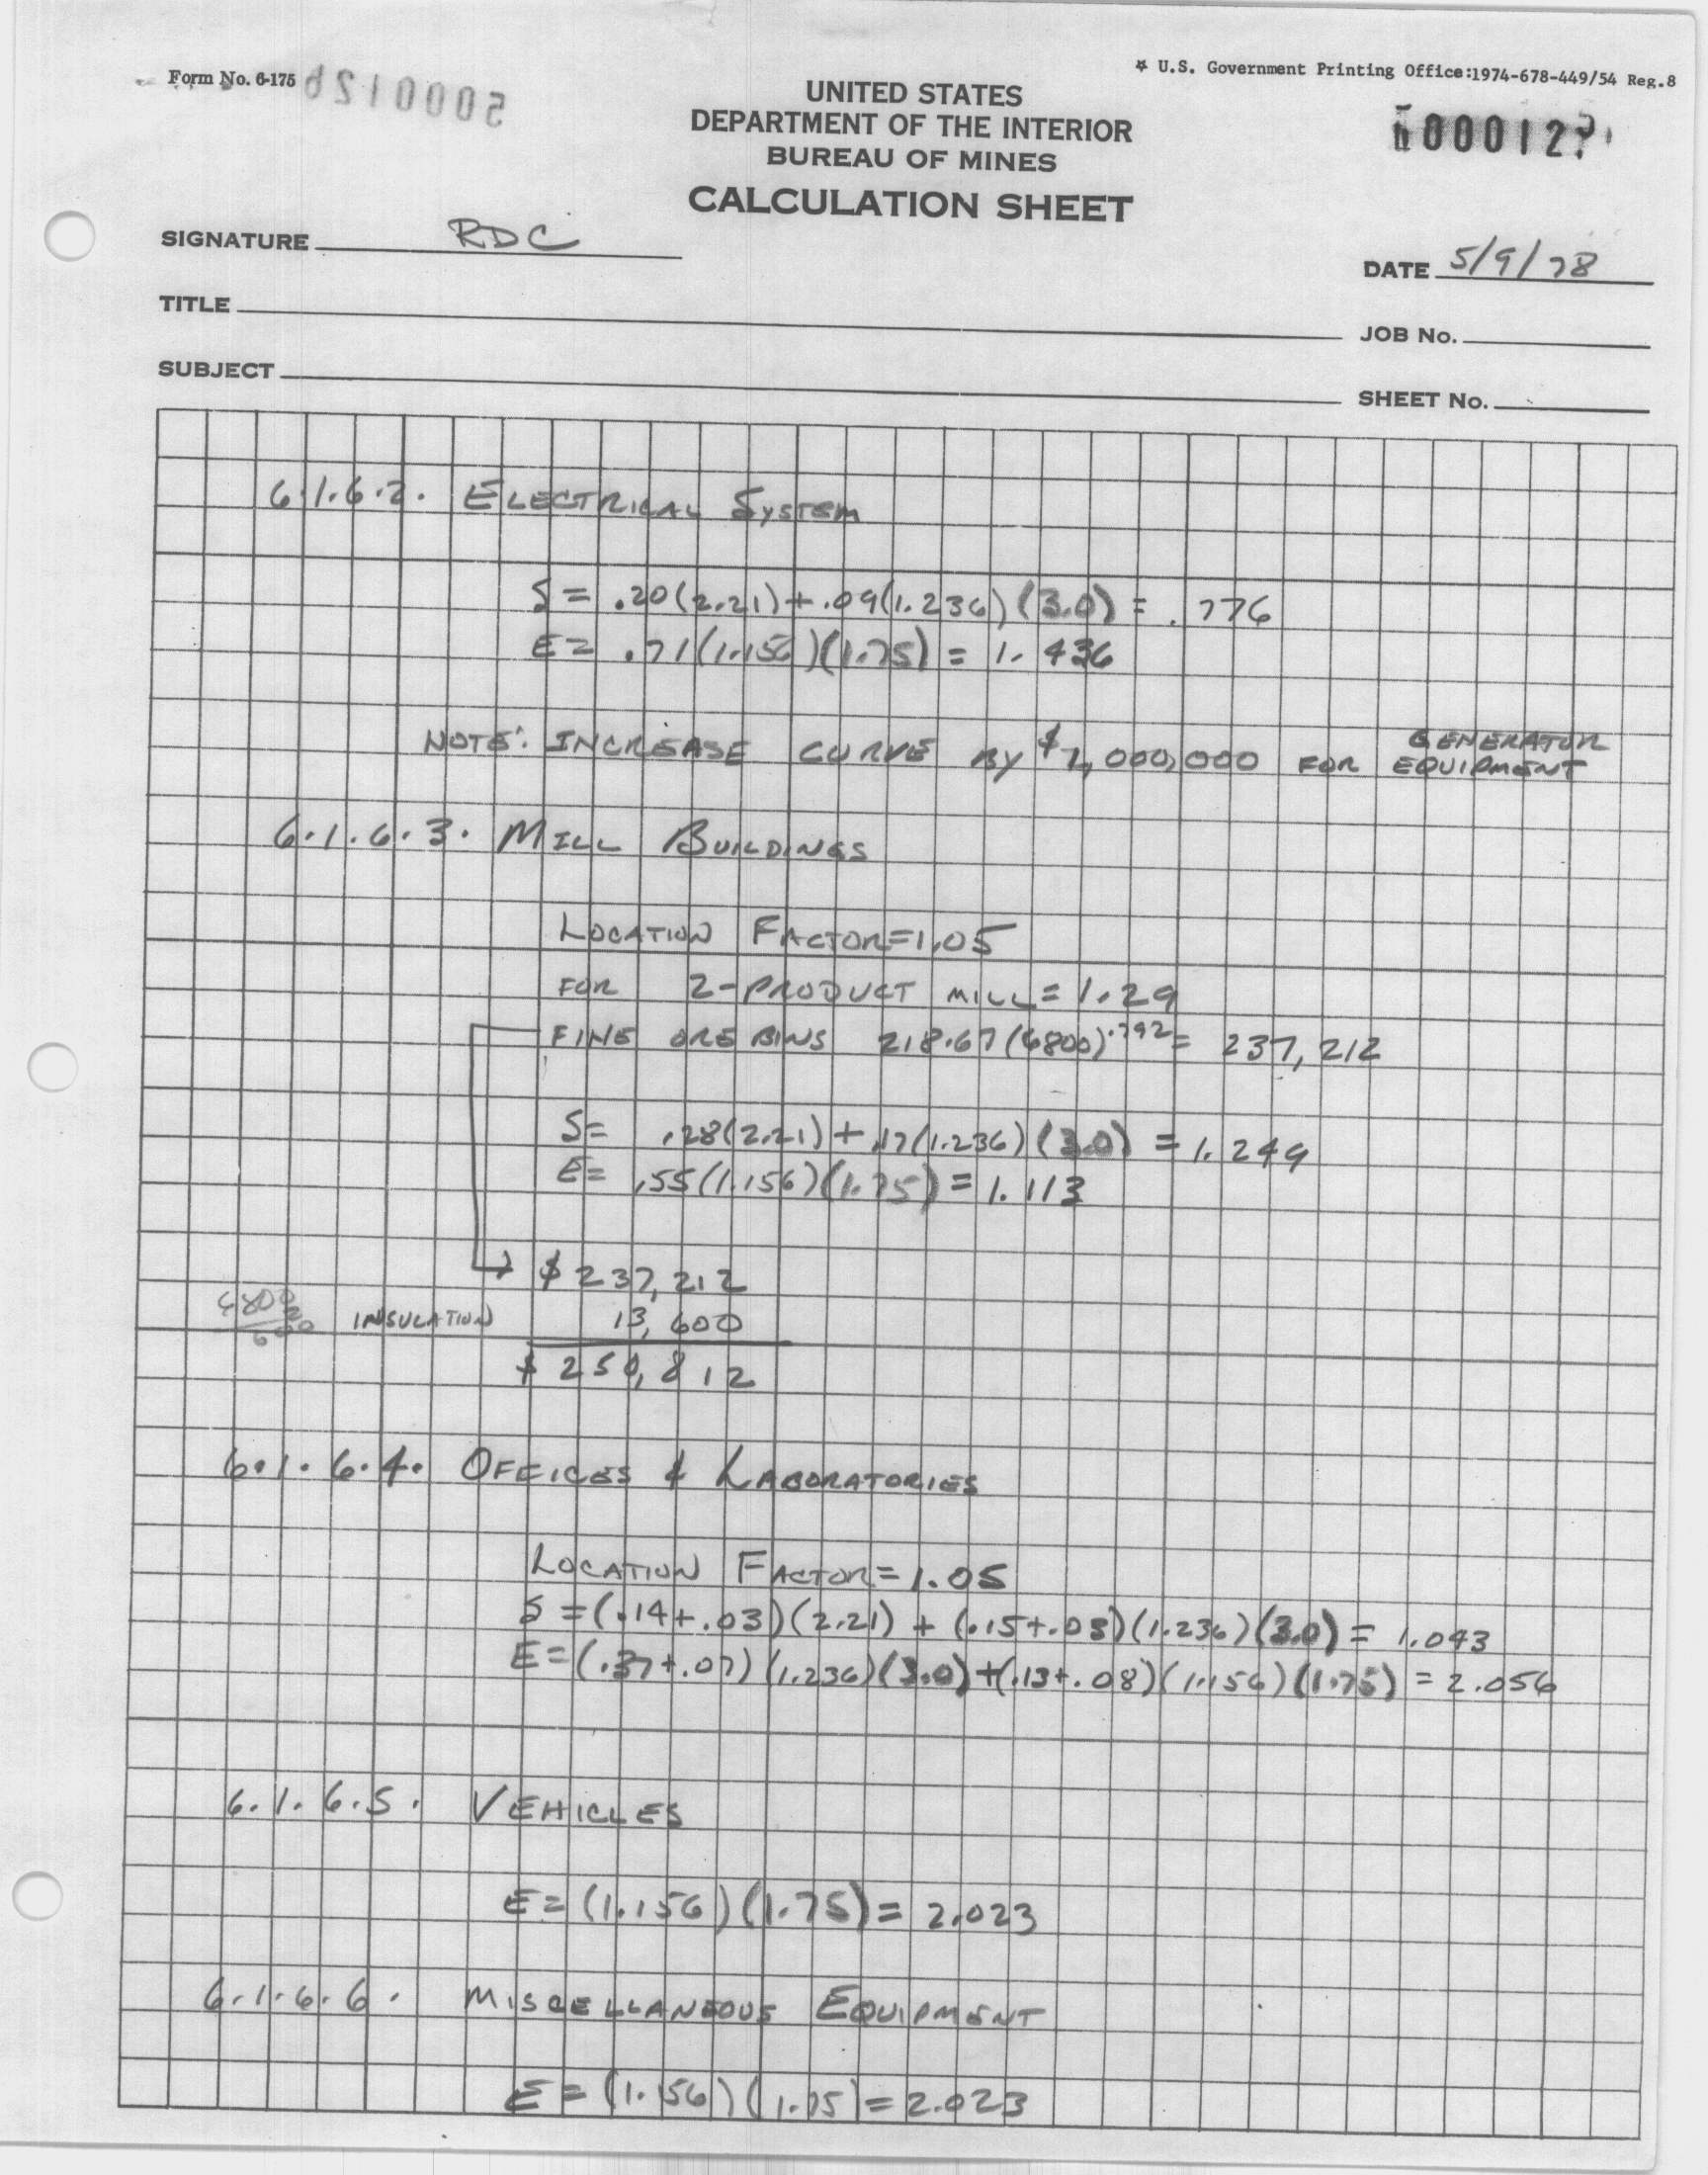 Form No. 6-175
* U.S. Government Printing Office:1974-678-449/54 Reg.8
UNITED STATES
DEPARTMENT OF THE INTERIOR
BUREAU OF MINES
CALCULATION SHEET
SIGNATURE RDC
DATE 5/9/78
TITLE
JOB No.
SUBJECT
SHEET No.
6.1.6.2. ELECTRICAL SYSTEM
S = .20(2.21)+.09(1.236)(3.0) = .776
E = .71(1.156)(1.75) = 1.436
NOTE: INCREASE CURVE BY $1,000,000 FOR GENERATOR EQUIPMENT
6.1.6.3. MILL BUILDINGS
LOCATION FACTOR=1.05
FOR 2-PRODUCT MILL = 1.29
FINE ORE BINS 218.67(6800)^.792 = 237,212
S= .28(2.21)+.17(1.236)(3.0) = 1.249
E= .55(1.156)(1.75) = 1.113
$ 237,212
INSULATION 13,600
$ 250,812
6.1.6.4. OFFICES & LABORATORIES
LOCATION FACTOR=1.05
S =(.14+.03)(2.21) + (.15+.03)(1.236)(3.0) = 1.043
E =(.37+.07)(1.236)(3.0)+(.13+.08)(1.156)(1.75) = 2.056
6.1.6.5. VEHICLES
E = (1.156)(1.75) = 2.023
6.1.6.6. MISCELLANEOUS EQUIPMENT
E = (1.156)(1.75) = 2.023